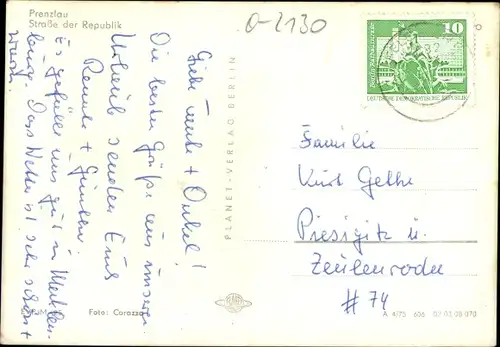 Prenzlau
Straße der Republik
O-2130
10
DEUTSCHE DEMOKRATISCHE REPUBLIK
Liebe Tante + Onkel!
Die besten Grüße aus unserem
Urlaub senden Euch
Renate + Günther.
Es gefällt uns gut in Mecklen-
burg. Das Wetter ist sehr schön +
warm.
PLANET-VERLAG BERLIN
Familie
Kurt Gethe
Piesigitz ü.
Zeulenroda
# 74
Foto: Corazza
A 4/75 606 02 03 08 070